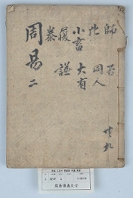 師 否
比 同人
小畜 大有
履 謙
泰
周易 二